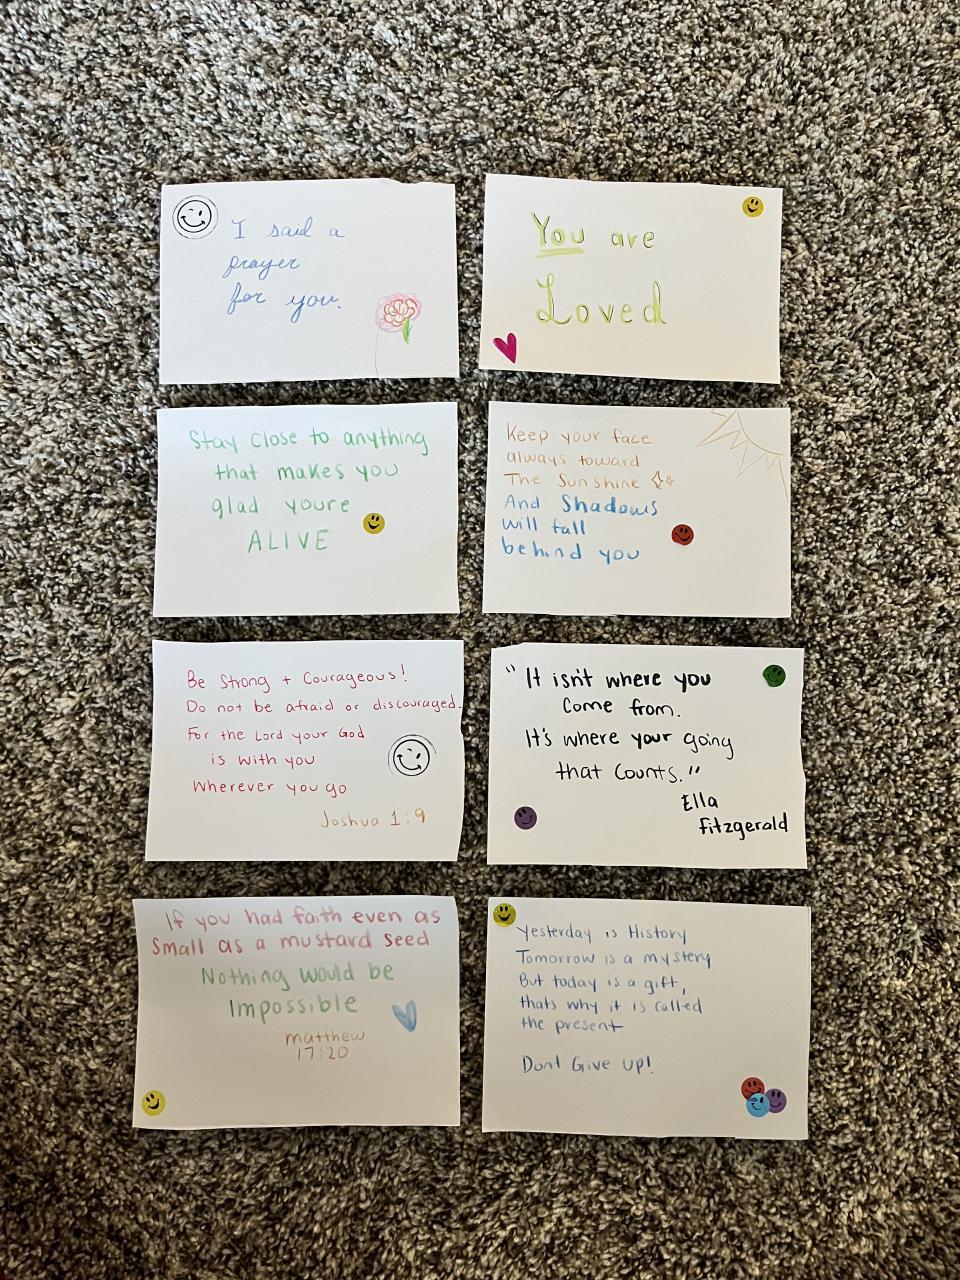 I said a
prayer
for you.
You are
Loved
Stay close to anything
that makes you
glad youre
ALIVE
Keep your face
always toward
The Sunshine
And Shadows
will fall
behind you
Be Strong + Courageous!
Do not be afraid or discouraged.
For the Lord your God
is with you
Wherever you go
Joshua 1:9
"It isn't where you
Come from.
It's where your going
that Counts."
Ella
Fitzgerald
If you had faith even as
Small as a mustard seed
Nothing would be
Impossible
matthew
17:20
Yesterday is History
Tomorrow is a mystery
But today is a gift,
thats why it is called
the present
Dont Give up!